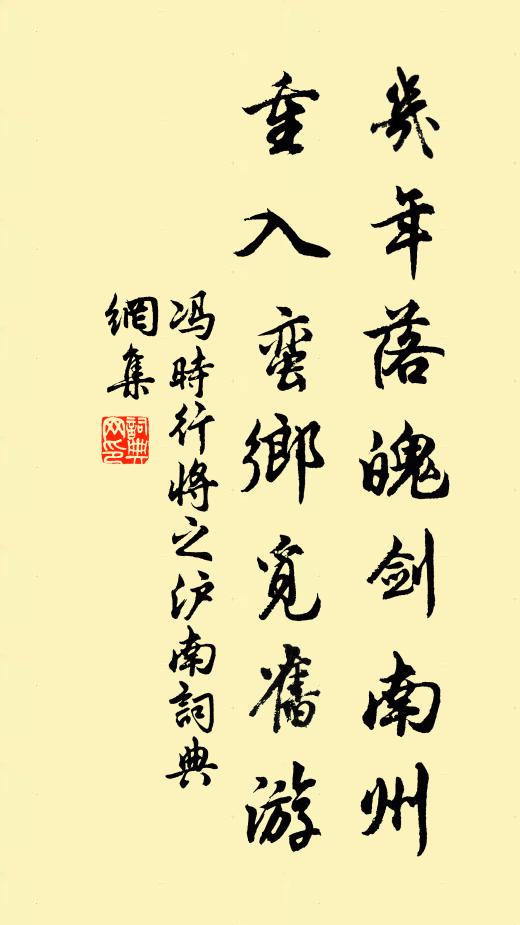 幾年落魄剑南州
重入蛮鄉覓舊游
冯時行将之泸南詞典
網集
詞典
网印